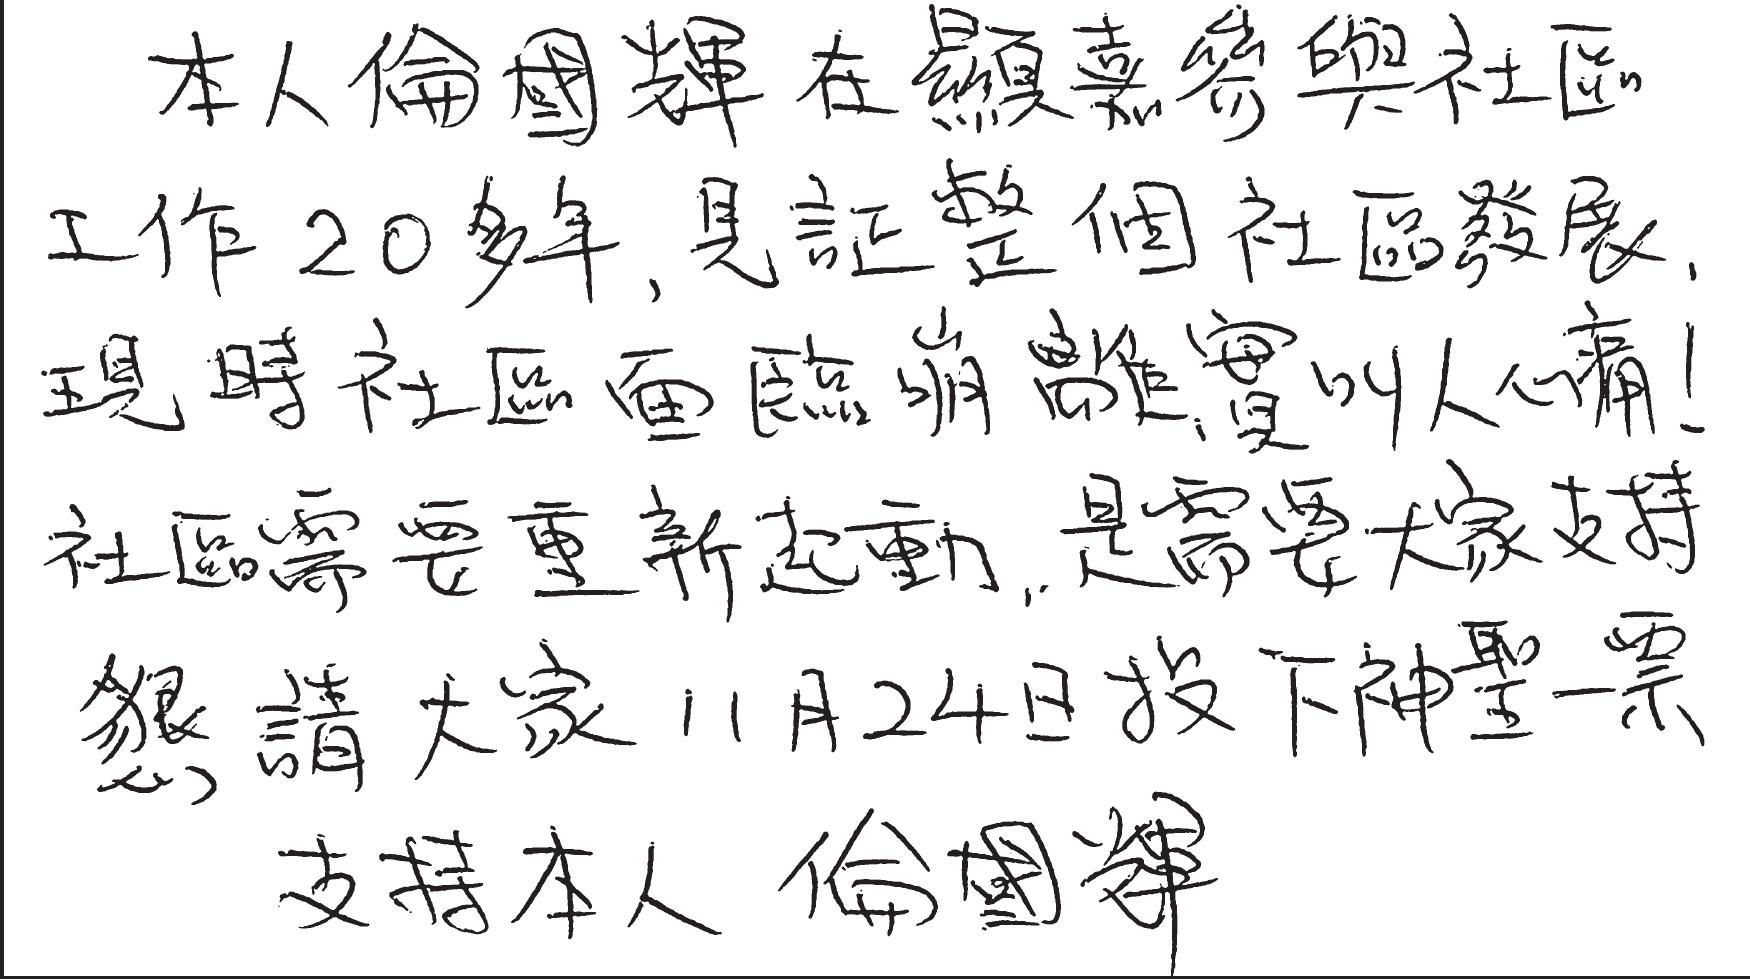 本人倫國輝在顯嘉參與社區
工作20多年,見証整個社區發展,
現時社區面臨崩壞難,實叫人心痛!
社區需要重新起動,是需要大家支持
懇請大家11月24日投下神聖一票、
支持本人 倫國輝